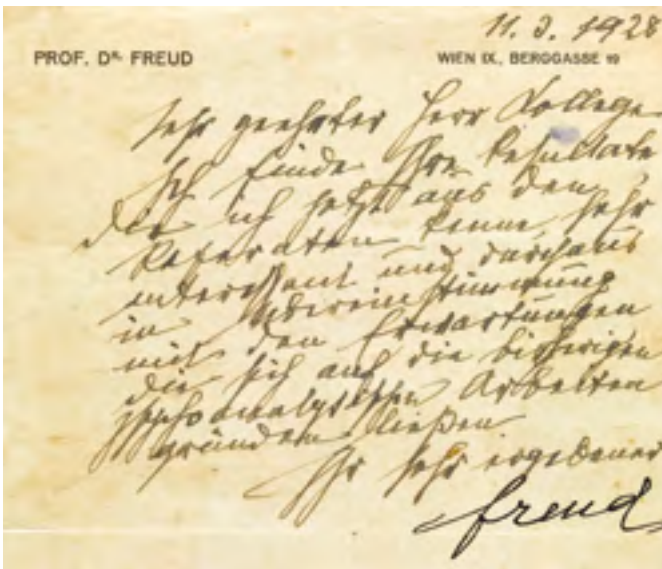 11. 3. 1928
PROF. DR. FREUD WIEN IX., BERGGASSE 19
Sehr geehrter Herr Kollege
Ich finde Ihre Resultate
die ich jetzt aus den
Referaten kenne, sehr
interessant und durchaus
in Übereinstimmung
mit den Erwartungen
die sich auf die bisherigen
psychoanalytischen Arbeiten
gründen ließen
Ihr sehr ergebener
Freud